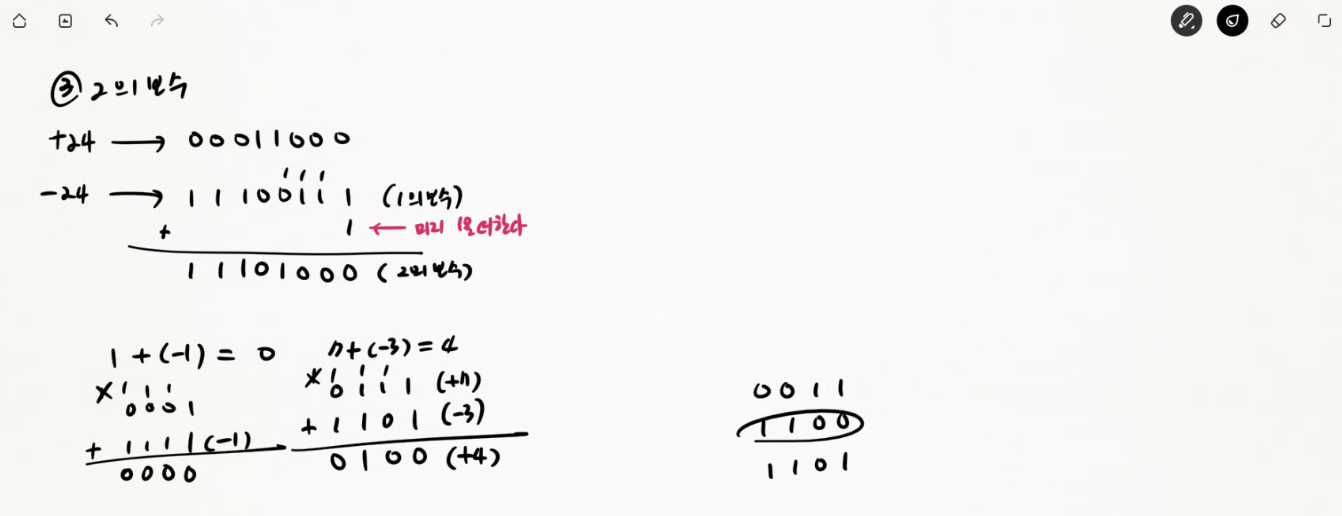 ③ 2의 보수
+24 → 00011000
-24 → 11100111 (1의 보수)
+ 1 ← 미리 1을 더한다
11101000 (2의 보수)
1 + (-1) = 0
111
0001
+ 1111 (-1)
0000
7 + (-3) = 4
111
0111 (+7)
+ 1101 (-3)
0100 (+4)
0011
1100
1101